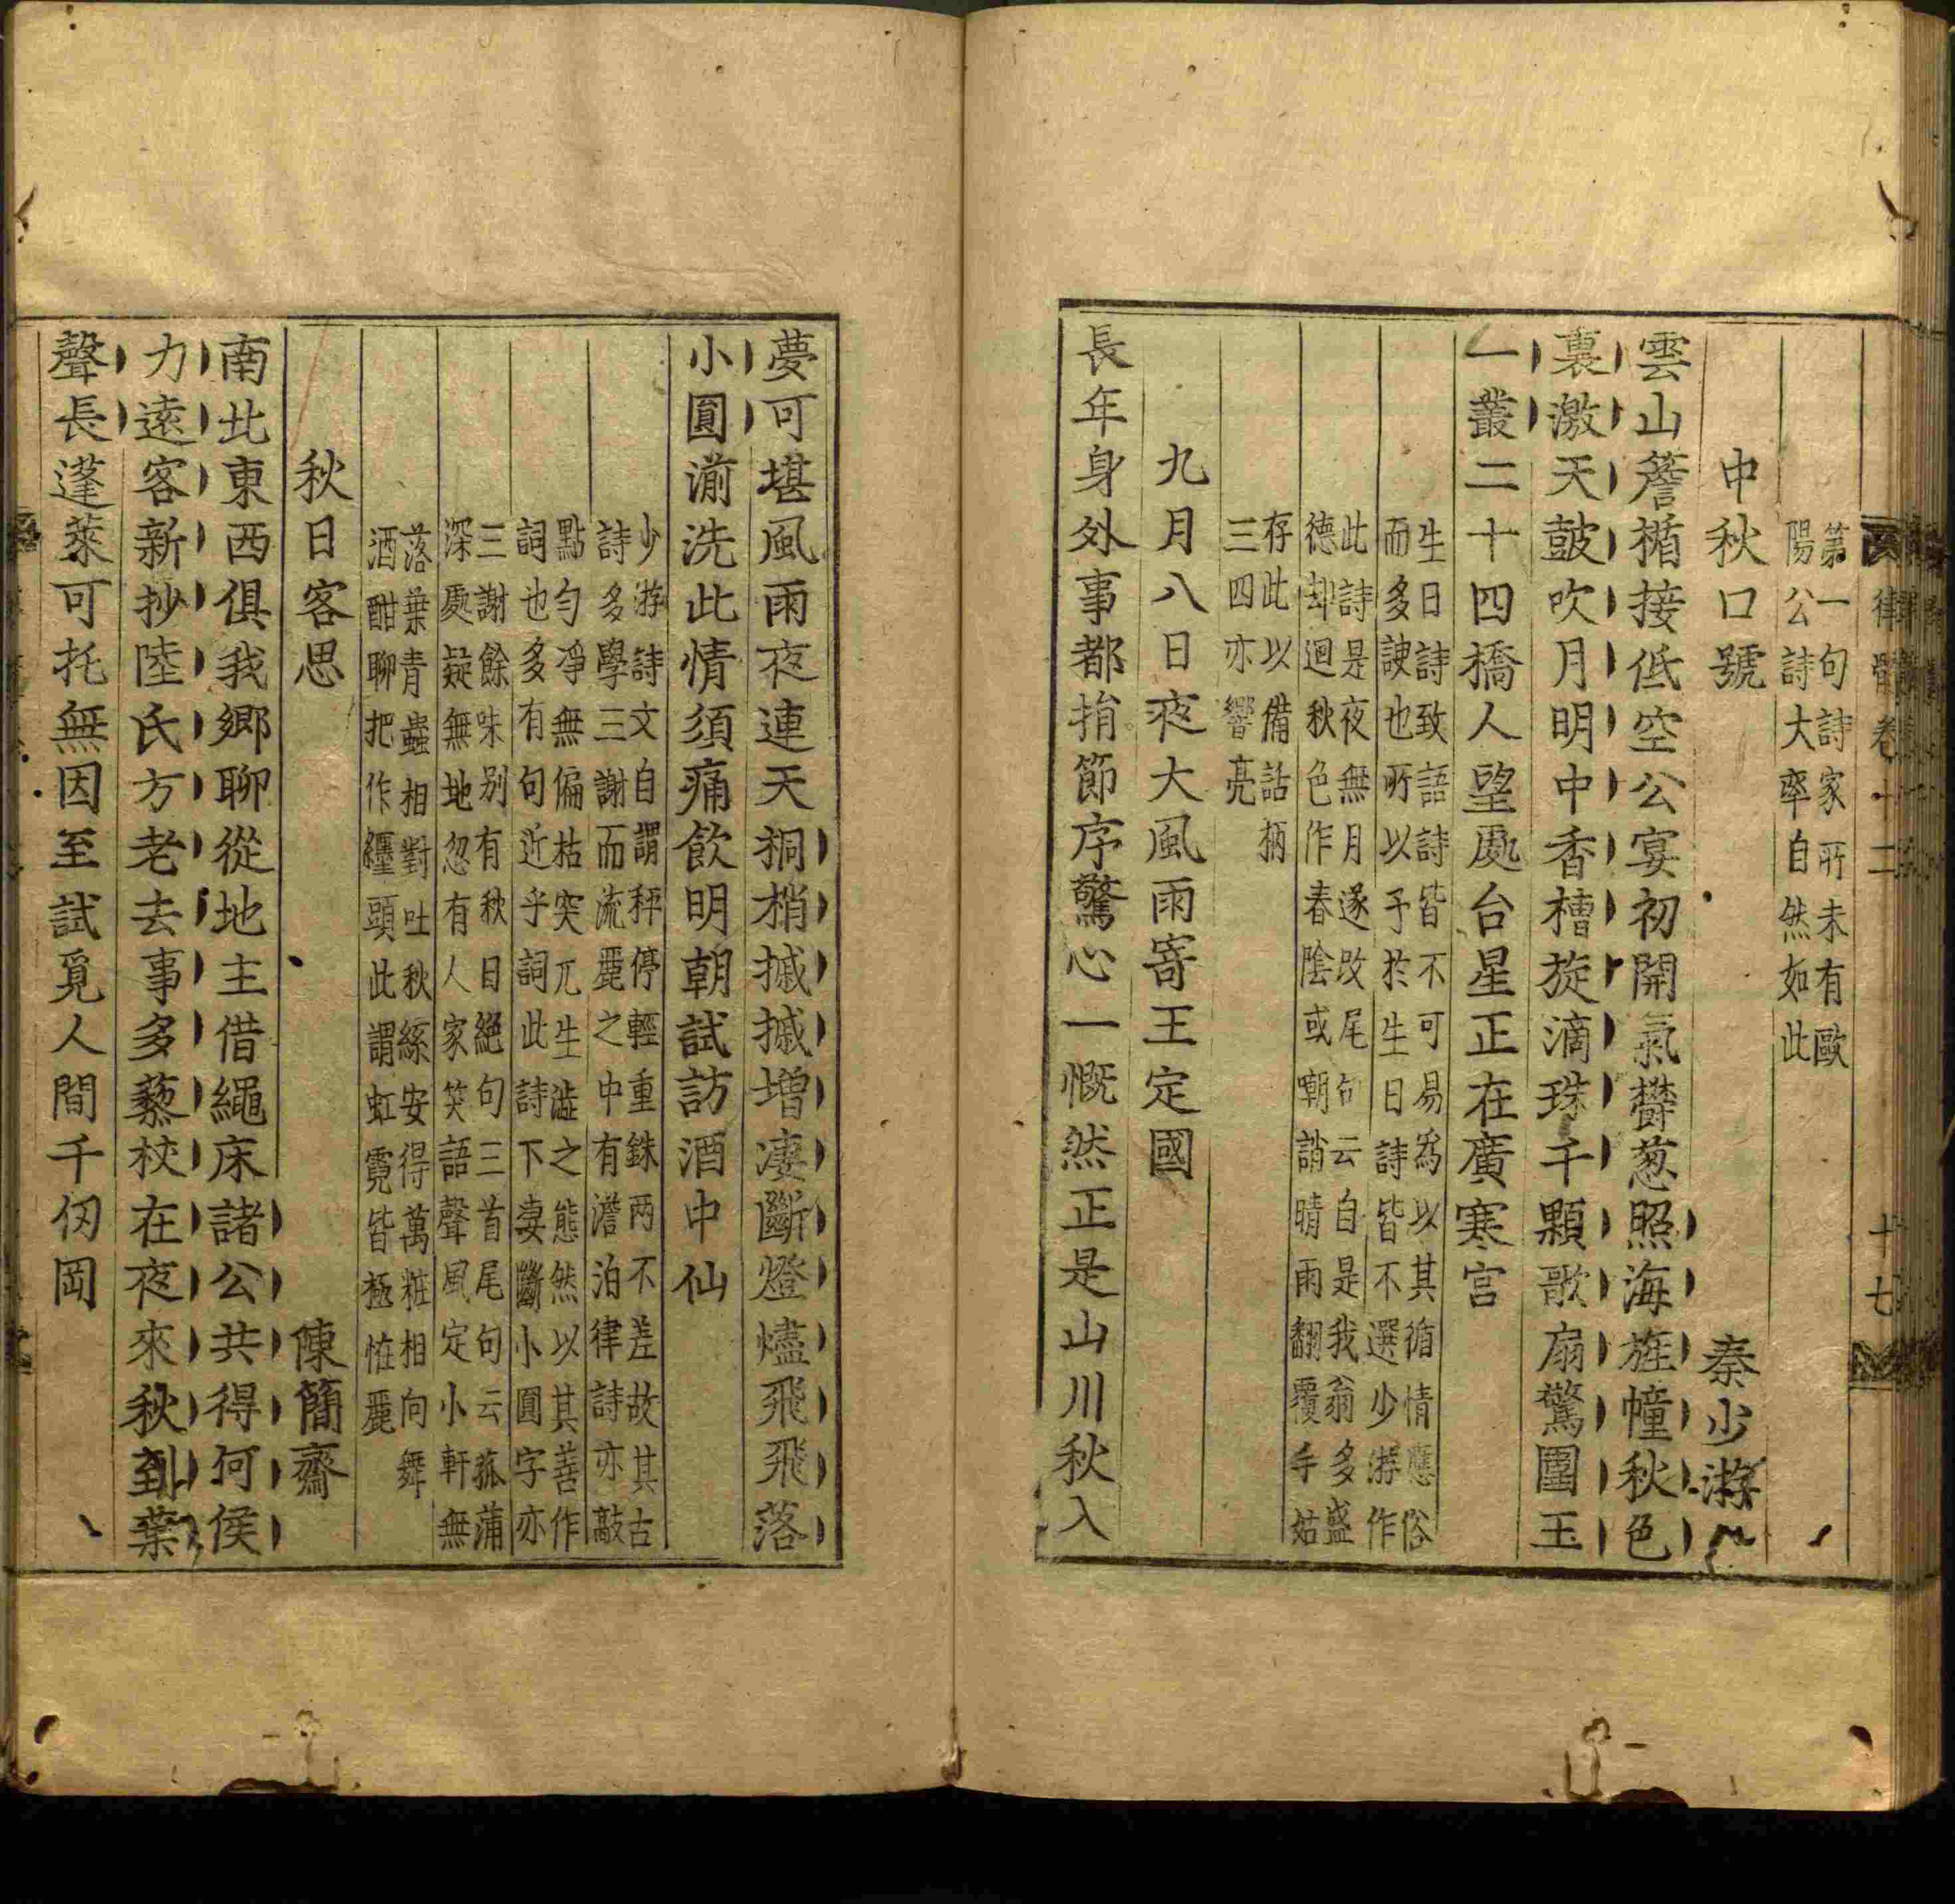 律髓卷十二
十七
第一句詩家所未有歐
陽公詩大率自然如此
中秋口號
秦少游
雲山簷楯接低空公宴初開氣鬱葱照海旌幢秋色
裏激天皷吹月明中香槽旋滴珠千顆歌扇驚圍玉
一叢二十四橋人望處台星正在廣寒宮
生日詩致語詩皆不可易爲以其循情應俗
而多諛也所以予於生日詩皆不選少游作
此詩是夜無月遂改尾句云自是我翁多盛
德却迴秋色作春陰或嘲誚晴雨翻覆手姑
存此以備話柄
三四亦響亮
九月八日夜大風雨寄王定國
長年身外事都捐節序驚心一慨然正是山川秋入
夢可堪風雨夜連天桐梢摵摵增凄斷燈燼飛飛落
小圓湔洗此情須痛飲明朝試訪酒中仙
少游詩文自謂秤停輕重銖两不差故其古
詩多學三謝而流麗之中有澹泊律詩亦敲
點勻凈無偏枯突兀生澁之態然以其善作
詞也多有句近乎詞此詩下凄斷小圓字亦
三謝餘味别有秋日絕句三首尾句云菰蒲
深處疑無地忽有人家笑語聲風定小軒無
落葉青蟲相對吐秋絲安得萬粧相向舞
酒酣聊把作纏頭此謂虹霓皆極恠麗
秋日客思
陳簡齋
南北東西俱我鄉聊從地主借繩床諸公共得何侯
力遠客新抄陸氏方老去事多藜杖在夜來秋到葉
聲長蓬萊可托無因至試覓人間千仞岡